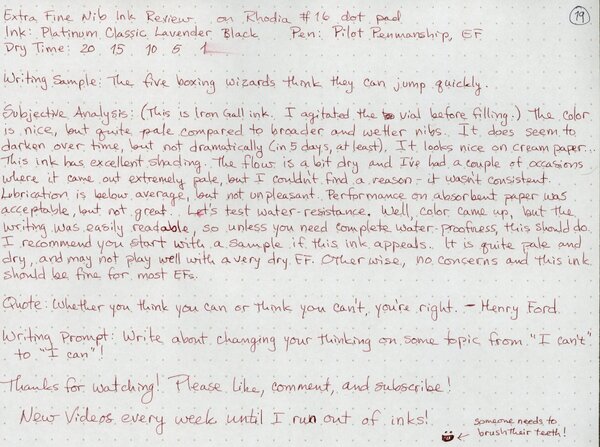 Extra Fine Nib Ink Review on Rhodia #16 dot pad
19
Ink: Platinum Classic Lavender Black Pen: Pilot Penmanship, EF
Dry Time: 20 15 10 5 1
Writing Sample: The five boxing wizards think they can jump quickly.
Subjective Analysis: (This is Iron Gall ink. I agitated the vial before filling.) The color
is nice, but quite pale compared to broader and wetter nibs. It does seem to
darken over time, but not dramatically (in 5 days, at least). It looks nice on cream paper...
This ink has excellent shading. The flow is a bit dry and I've had a couple of occasions
where it came out extremely pale, but I couldn't find a reason - it wasn't consistent.
Lubrication is below average, but not unpleasant. Performance on absorbent paper was
acceptable, but not great. Let's test water-resistance. Well, color came up, but the
writing was easily readable, so unless you need complete water-proofness, this should do.
I recommend you start with a sample if this ink appeals. It is quite pale and
dry, and may not play well with a very dry EF. Otherwise, no concerns and this ink
should be fine for most EFs.
Quote: Whether you think you can or think you can't, you're right. - Henry Ford.
Writing Prompt: Write about changing your thinking on some topic from "I can't"
to "I can"!
Thanks for watching! Please like, comment, and subscribe!
New Videos every week until I run out of inks!
someone needs to
brush their teeth!